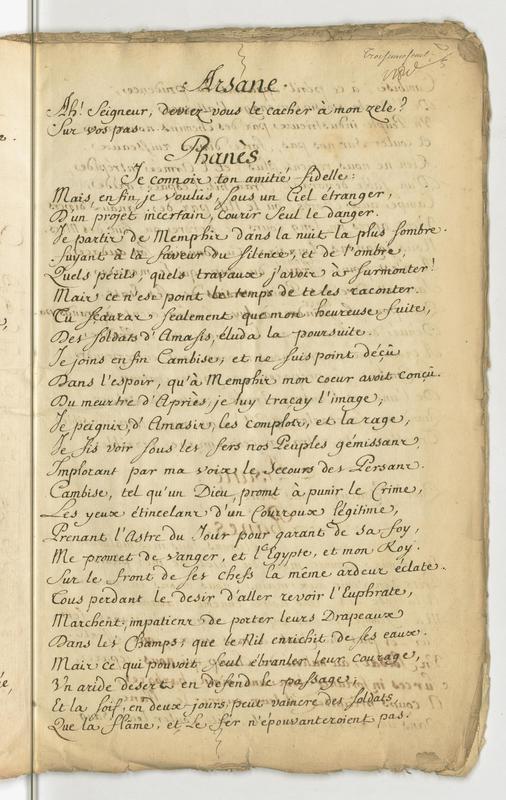 Troisieme feuil.
Arsane.
Ah! Seigneur, deviez vous le cacher à mon zele?
Sur vos pas
Phanes.
Je connois ton amitié fidelle:
Mais, enfin je voulus sous un Ciel étranger,
D'un projet incertain, courir seul le danger.
Je partis de Memphis dans la nuit la plus sombre.
Fuyant à la faveur du silence, et de l'ombre,
Quels périls, quels travaux j'avois à surmonter!
Mais ce n'est point le temps de te les raconter.
Tu sçauras seulement que mon heureuse fuite,
Des soldats d'Amasis, éluda la poursuite.
Je joins enfin Cambise; et ne suis point déçû
Dans l'espoir, qu'à Memphis mon coeur avoit conçû.
Du meurtre d'Apriès, je luy traçay l'image;
Je peignis, d'Amasis, les complots, et la rage,
Je fis voir sous les fers nos Peuples gémissans
Implorant par ma voix le secours des Persans.
Cambise, tel qu'un Dieu, promt à punir le Crime,
Les yeux étincelans d'un Courroux légitime,
Prenant l'Astre du Jour pour garant de sa foy,
Me promet de vanger, et l'Egypte, et mon Roy.
Sur le front de ses chefs la même ardeur éclate.
Tous perdant le desir d'aller revoir l'Euphrate,
Marchent, impatiens de porter leurs Drapeaux
Dans les Champs, que le Nil enrichit de ses eaux.
Mais ce qui pouvoit seul ébranler leur courage,
Un aride désert en défend le passage;
Et la soif, en deux jours, peut vaincre des soldats
Que la flâme, et le fer n'épouvanteroient pas.